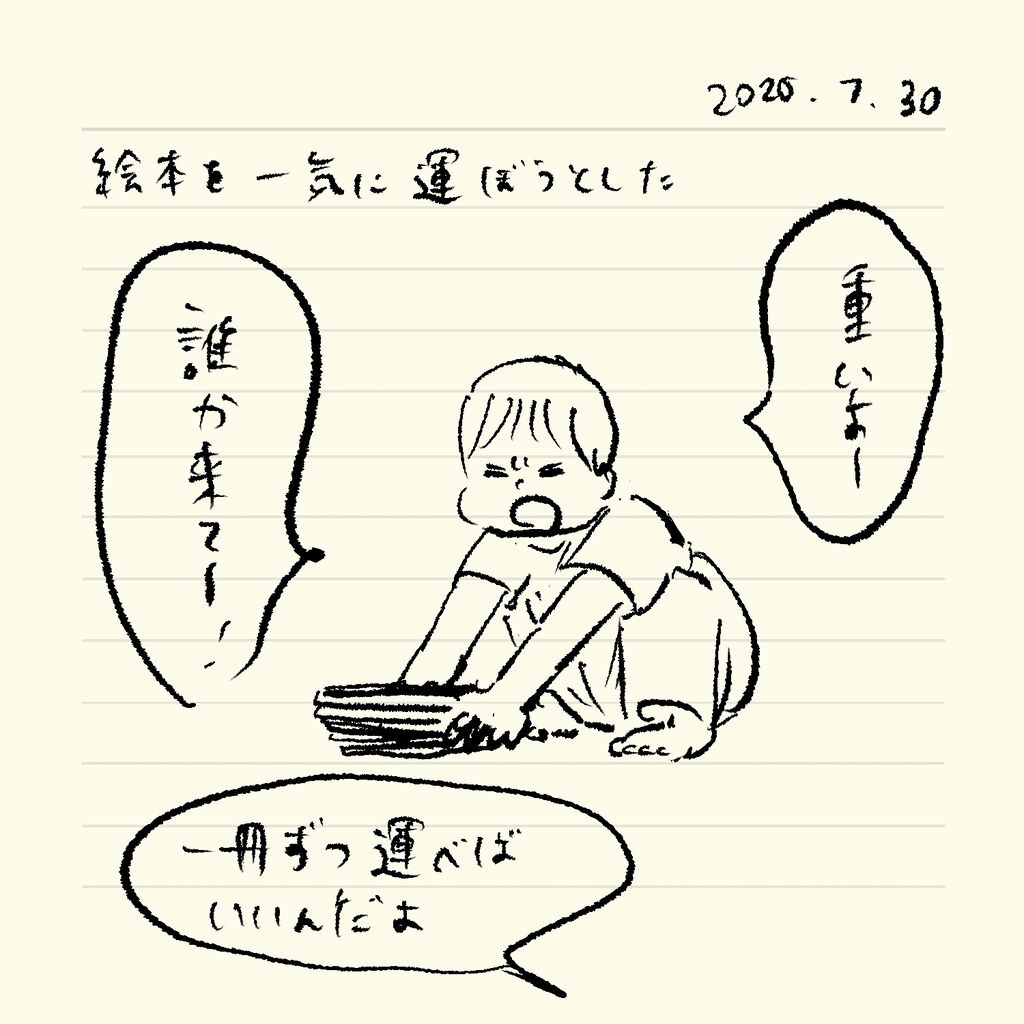 2020.7.30
絵本を一気に運ぼうとした
重いよー
誰か来てー!
一冊ずつ運べば
いいんだよ